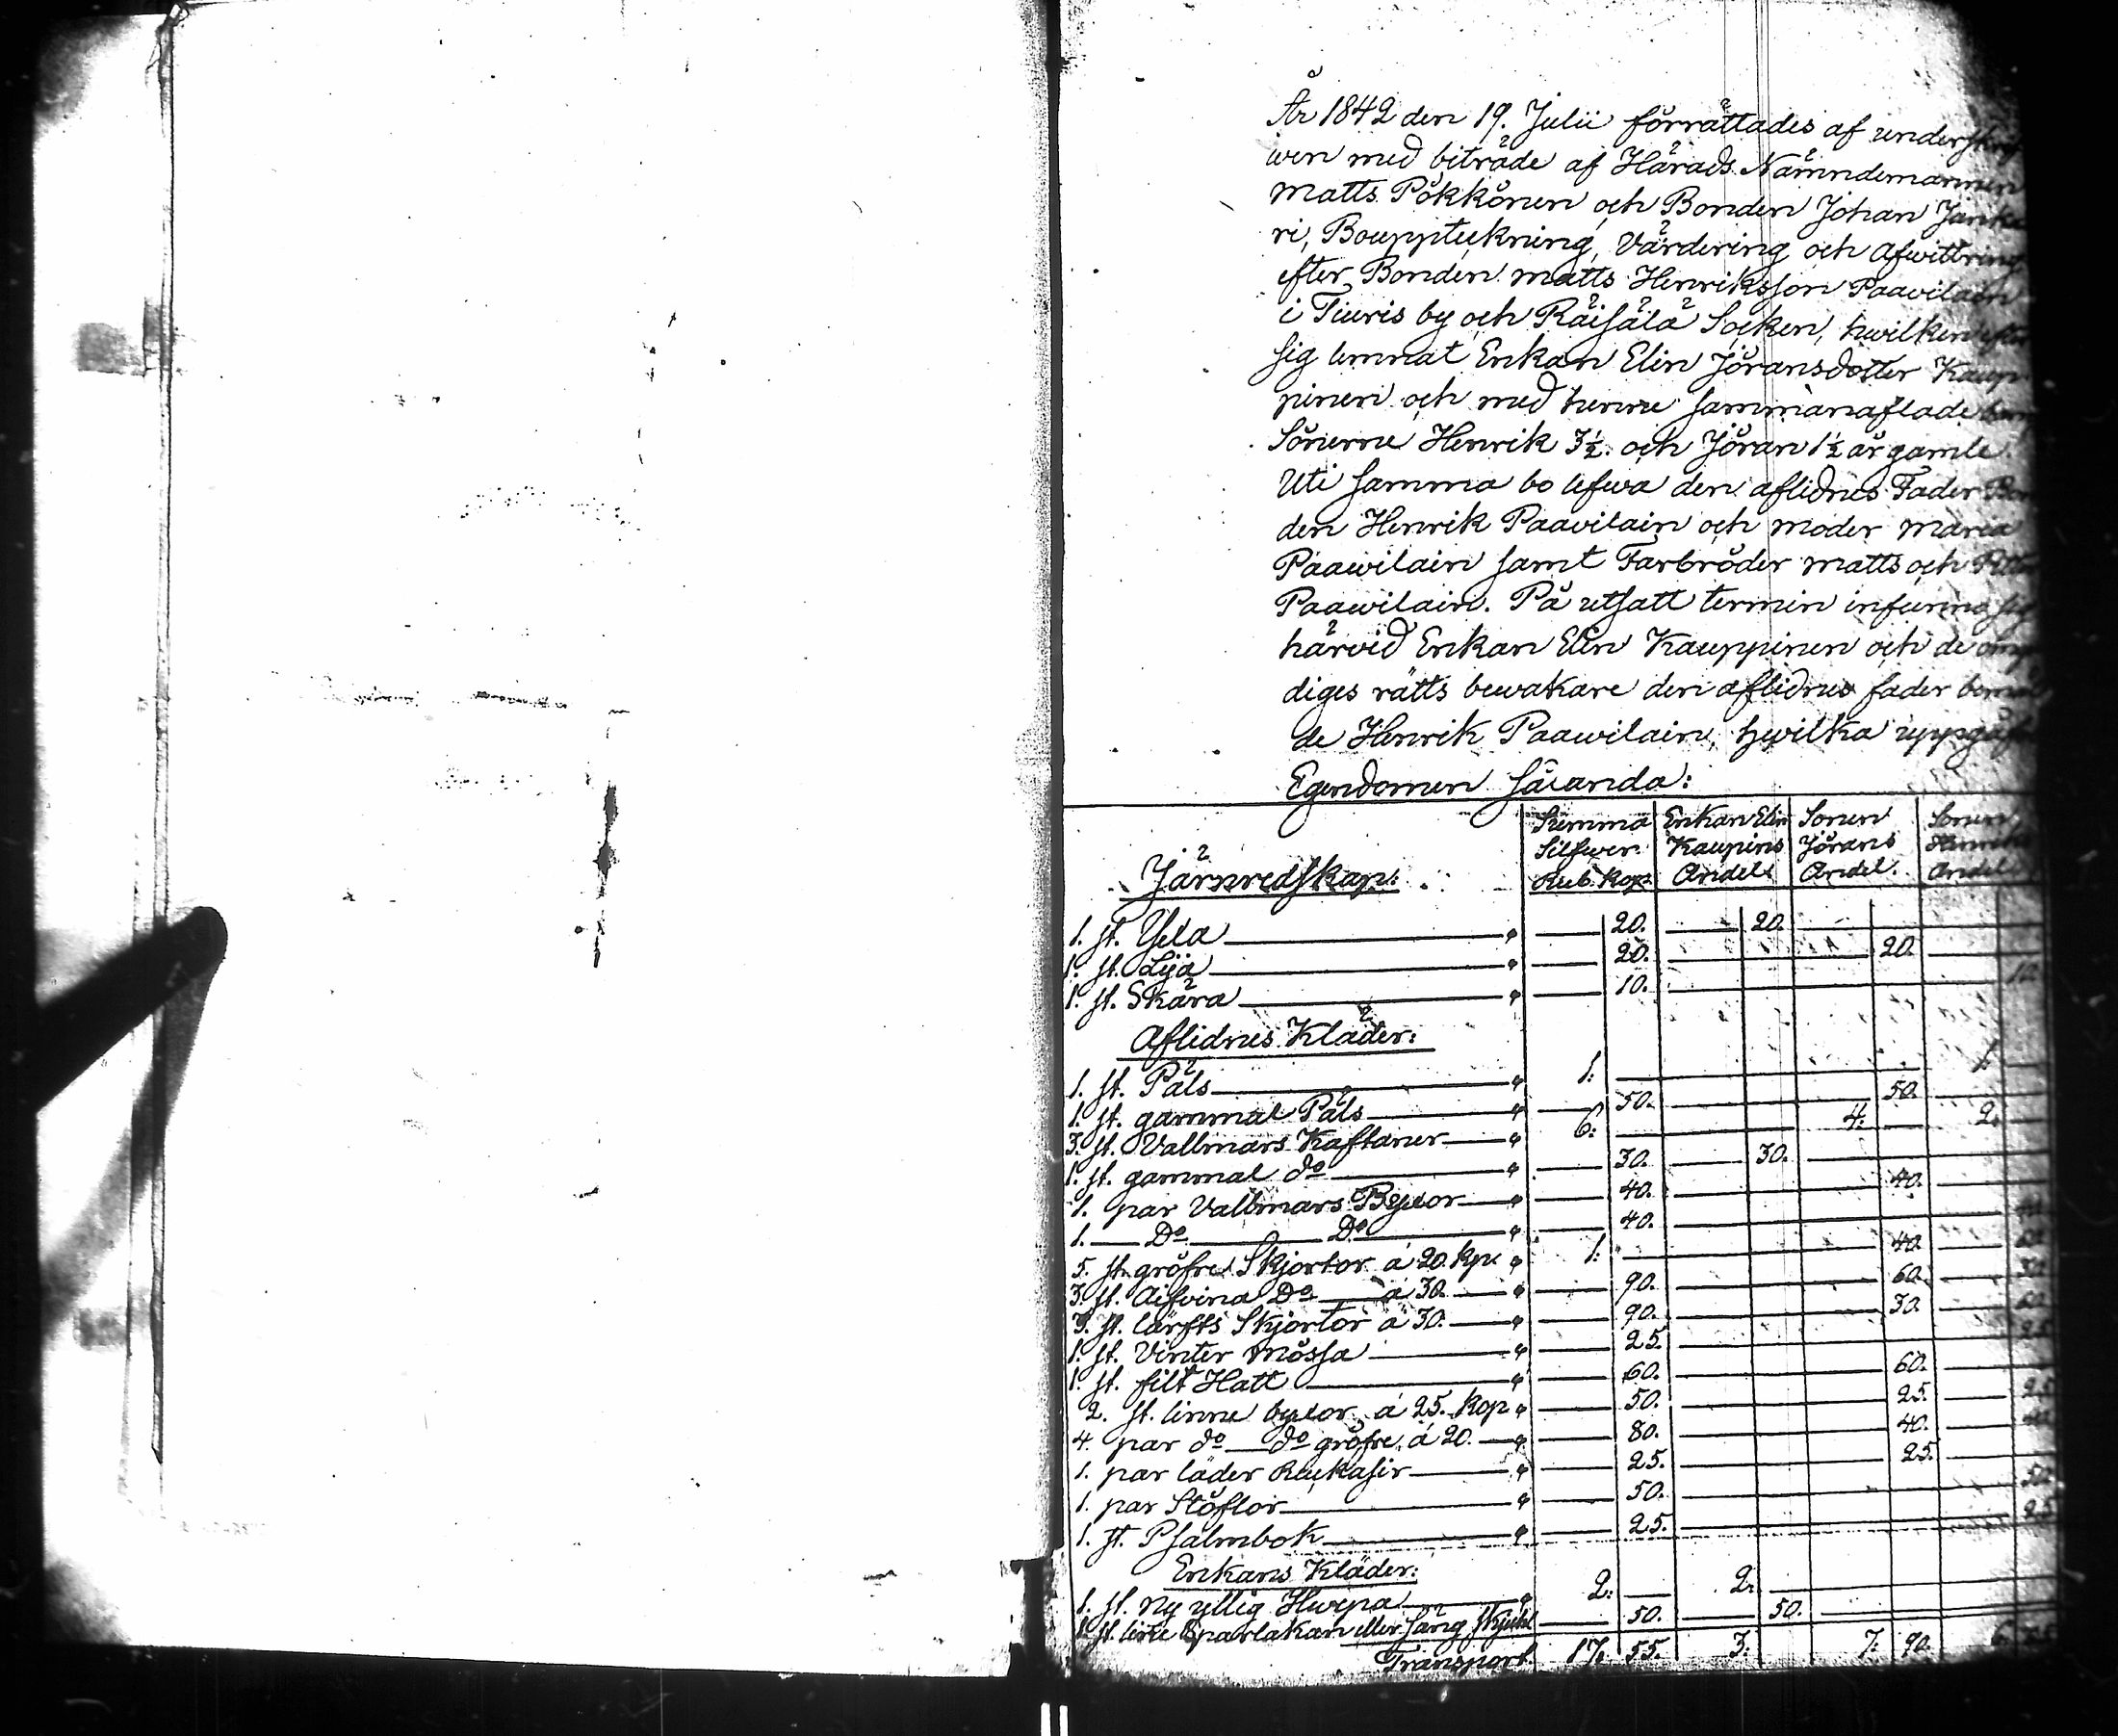 År 1842 den 19. Julii förrättades af underskrif
wen med biträde af Härads Nämndemannen
Matts Pökkönen och Bonden Johan Junka
ri, Bouppteckning, Värdering och Afwittring
efter Bonden Matts Henriksson Paavilain
i Tiuris by och Räisälä Socken, hwilken efter
sig lemnat Enkan Elin Jöransdotter Kaup
pinen och med henne sammanaflade barn
Sönerne Henrik 3½ och Jöran 1½ år gamle.
Uti samma bo lefwa den aflidnes Fader Bon
den Henrik Paavilain och moder Maria
Paawilain samt Farbröder Matts och Petter
Paawilain. På utsatt termin infunno sig
härvid Enkan Elin Kauppinen och de omyn
diges rätts bewakare den aflidnes fader bemäl
de Henrik Paawilain, hwilka uppgåfwo
Egendomen sålunda:
Summa Silfwer Rub. Kop. Enkan Elin Kaupins Andel Sonen Jörans Andel. Sonen Henriks Andel
Järnredskap:
1. st. Yxa 20. 20.
1. st. Lija 20. 20.
1. st. Skära 10. 10.
Aflidnes Kläder:
1. st. Päls 1: 1:
1. st. gammal Päls 50. 50.
3. st. Vallmars Kaftaner 6: 4: 2:
1. st. gammal do 30. 30.
1. par Vallmars Byxor 40. 40.
1. Do Do 40. 40.
5. st. gröfre Skjortor á 20. kp. 1: 40. 60.
3. st. Aifvina Do á 30. 90. 60. 30.
3. st. lärfts Skjortor á 30. 90. 30. 60.
1. st. Vinter Mössa 25. 25.
1. st. filt Hatt 60. 60.
2. st. linne byxor á 25. Kop 50. 25. 25.
4. par do do gröfre á 20. 80. 40. 40.
1. par läder Rukasir 25. 25.
1. par Stöflor 50. 50.
1. st. Psalmbok 25. 25.
Enkans Kläder:
1. st. ny yllig Hwipa 2: 2:
1. st. Sparlakan eller Säng 50. 50.
Transport. 17: 55. 3: 7: 90.